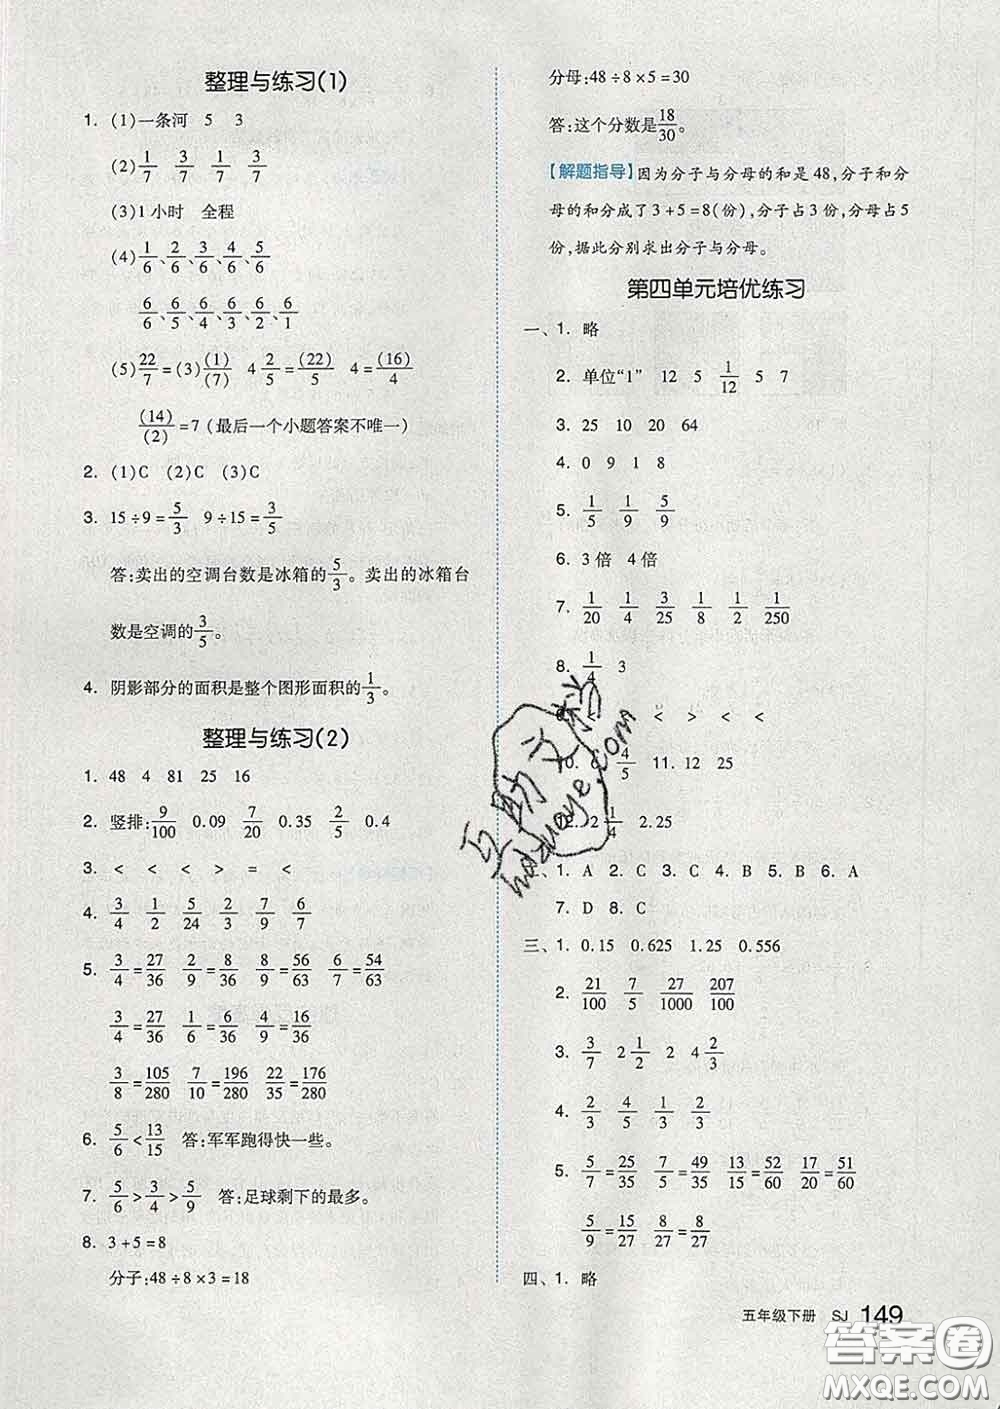 整理与练习(1)
1. (1)一条河 5 3
(2)1/7 3/7 1/7 3/7
(3)1小时 全程
(4)1/6、2/6、3/6、4/6、5/6
6/6、6/5、6/4、6/3、6/2、6/1
(5)22/7=(3)(1)/(7) 4 2/5=(22)/5 4=(16)/4
(14)/(2)=7(最后一个小题答案不唯一)
2. (1)C (2)C (3)C
3. 15÷9=5/3 9÷15=3/5
答:卖出的空调台数是冰箱的5/3。卖出的冰箱台
数是空调的3/5。
4. 阴影部分的面积是整个图形面积的1/3。
整理与练习(2)
1. 48 4 81 25 16
2. 竖排:9/100 0.09 7/20 0.35 2/5 0.4
3. < < < > = <
4. 3/4 1/2 5/24 2/3 7/9 6/7
5. 3/4=27/36 2/9=8/36 8/9=56/63 6/7=54/63
3/4=27/36 1/6=6/36 4/9=16/36
3/8=105/280 7/10=196/280 22/35=176/280
6. 5/6<13/15 答:军军跑得快一些。
7. 5/6>3/4>5/9 答:足球剩下的最多。
8. 3+5=8
分子:48÷8×3=18
分母:48÷8×5=30
答:这个分数是18/30。
【解题指导】因为分子与分母的和是48,分子和分
母的和分成了3+5=8(份),分子占3份,分母占5
份,据此分别求出分子与分母。
第四单元培优练习
一、1. 略
2. 单位“1” 12 5 1/12 5 7
3. 25 10 20 64
4. 0 9 1 8
5. 1/5 1/9 5/9
6. 3倍 4倍
7. 1/20 1/4 3/25 1/8 1/2 1/250
8. 1/4 3
< > < <
6 4/5 11. 12 25
2 1/4 2.25
1. A 2. C 3. C 4. B 5. B 6. A
7. D 8. C
三、1. 0.15 0.625 1.25 0.556
2. 21/100 7/5 27/1000 207/100
3. 3/7 2 1/2 2 4 2/3
4. 2/3 4/5 1/3 2/3
5. 5/7=25/35 7/5=49/35 13/15=52/60 17/20=51/60
5/9=15/27 8/27=8/27
四、1. 略
五年级下册 SJ 149
互助文档
hdzuoye.com
答案圈
MXQE.COM